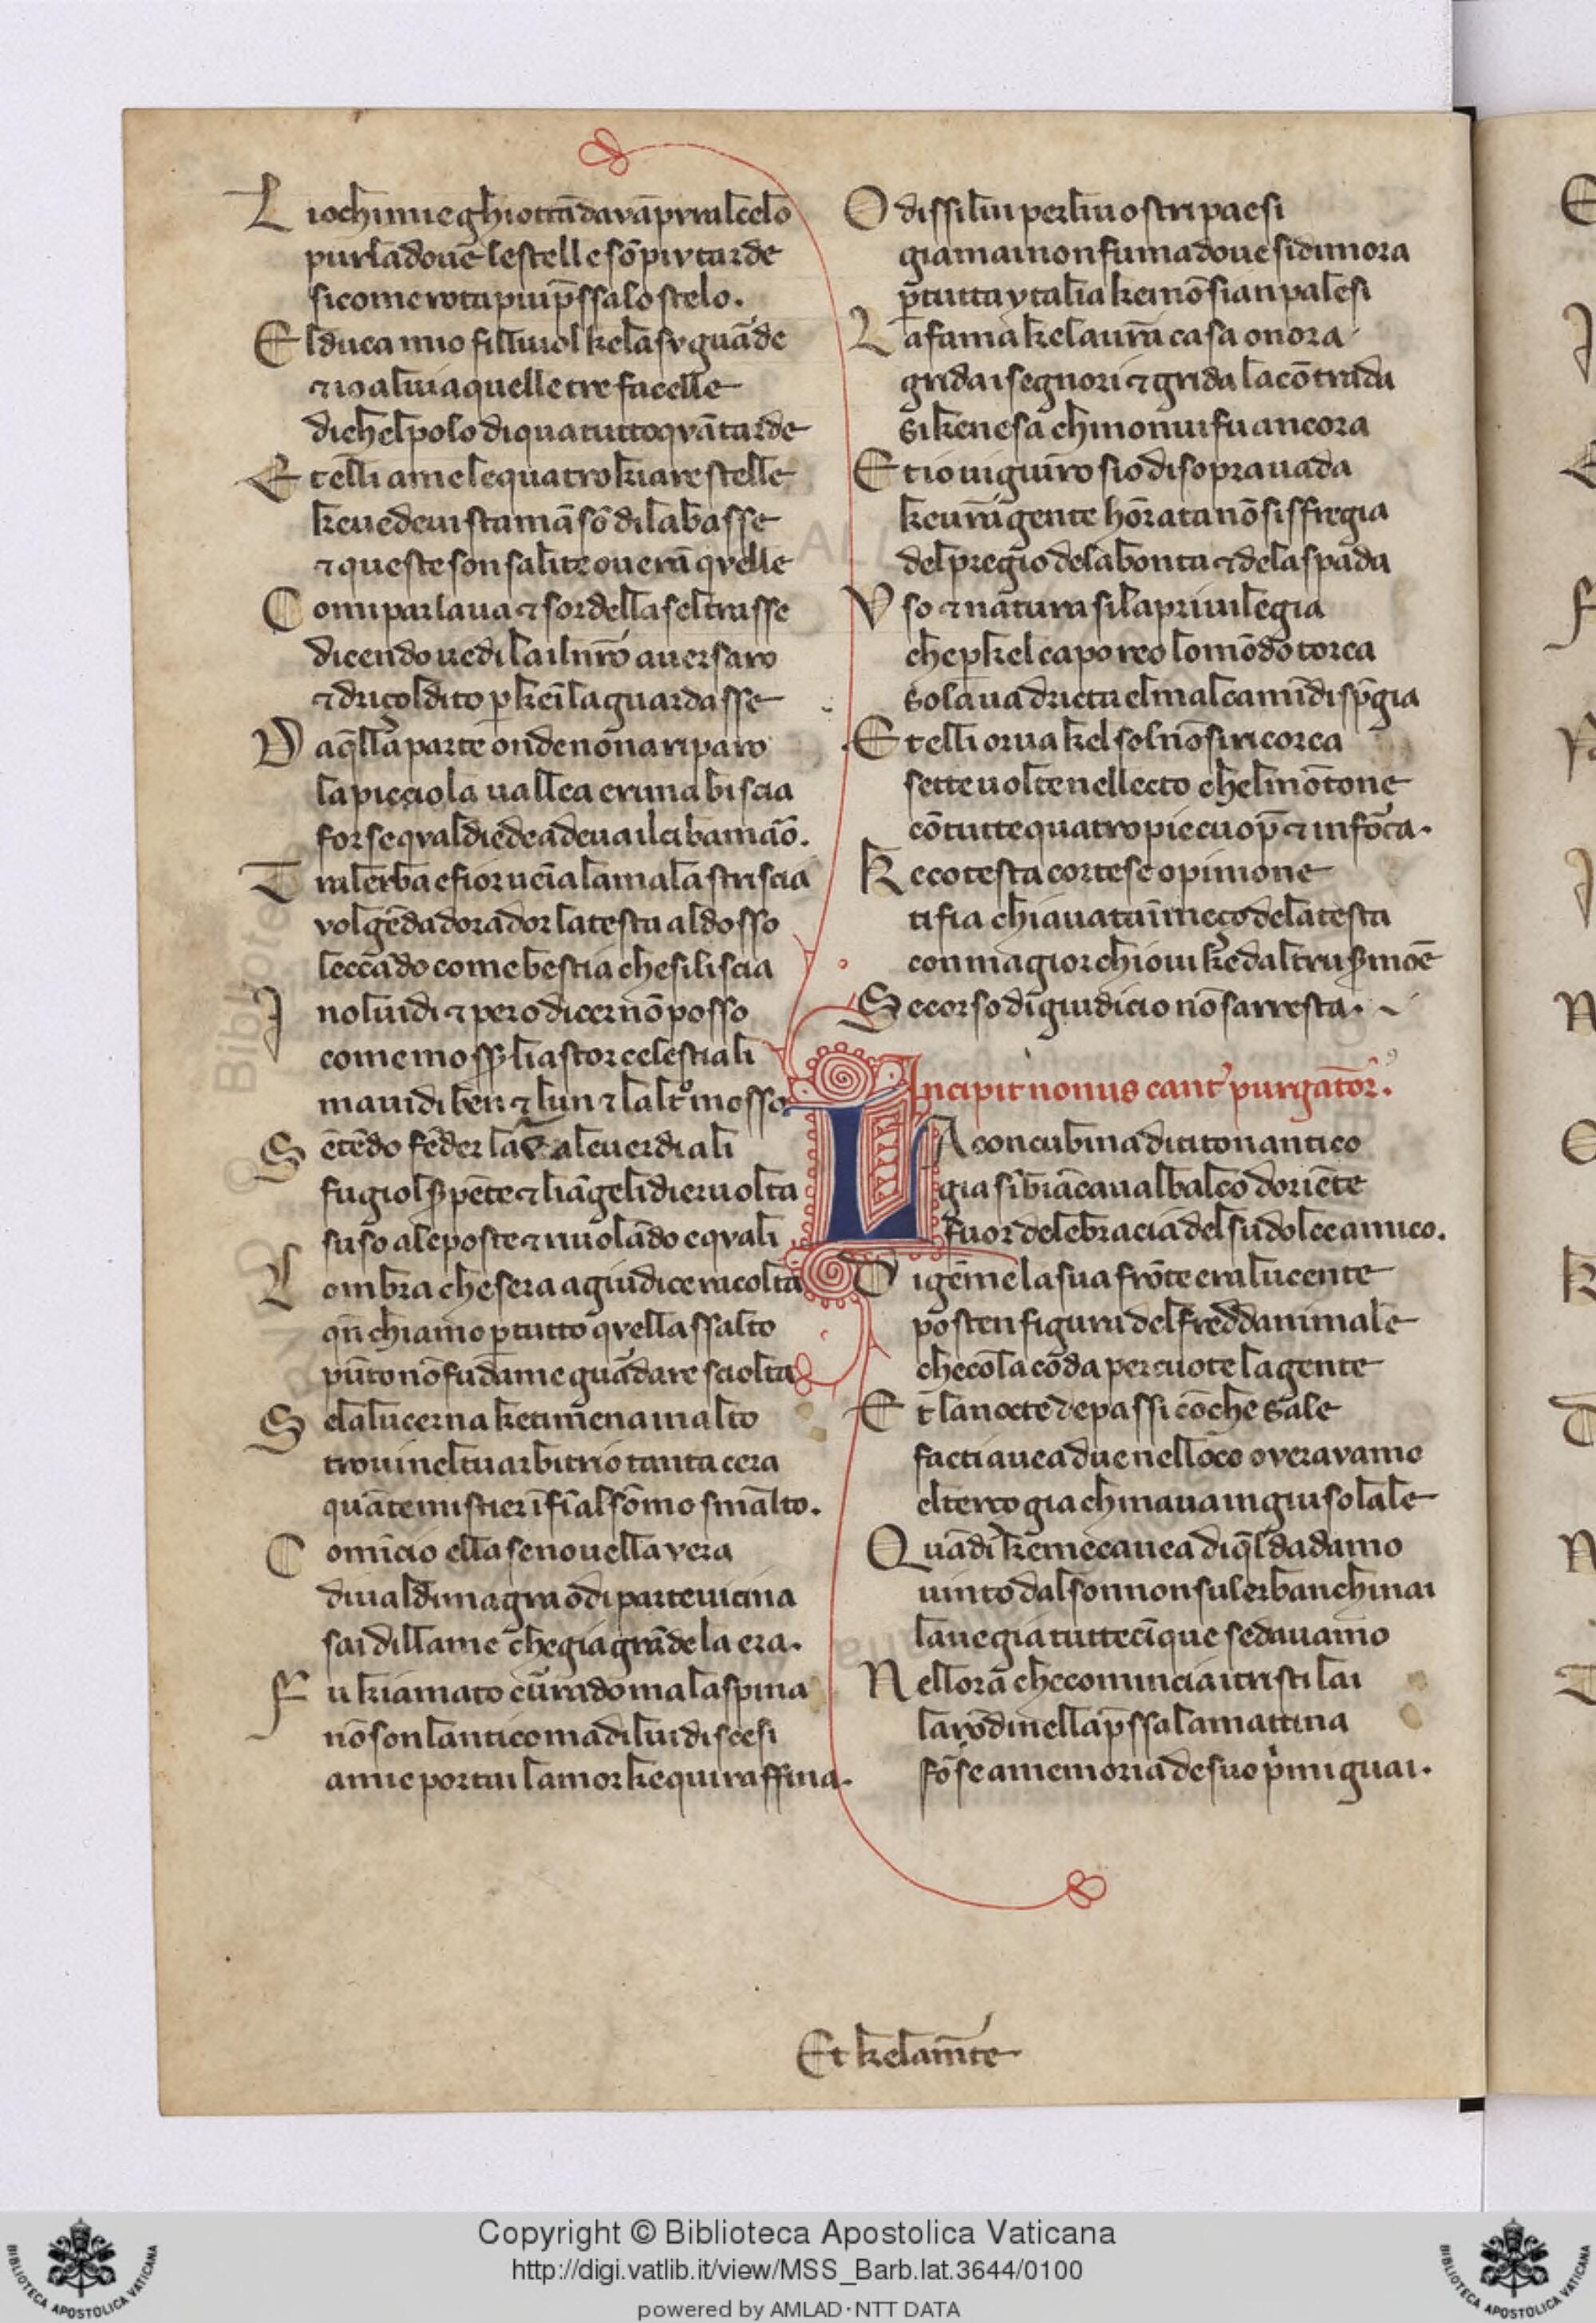 L iochi miei ghiotti ãdavã pur al celo
pur lã doue le stelle sõ piv tarde
si come rota piu p̃ssa lo stelo.
E l duca mio filliuol ke lasv guãde
⁊ io a lui a quelle tre facelle
di chel polo di qua tutto qvãto arde
E t elli a me le quatro kiare stelle
ke uedeui staman sõ di la basse
⁊ queste son salite ouerã qvelle
C om i parlaua ⁊ sordello a se l trasse
dicendo uedi la il nr̃o auersaro
⁊ driço l dito p̱ ke ĩ la guardasse
D a q̃lla parte onde nõ na riparo
la picciola uallea era una biscia
forse qval diede ad eua il cibo amaõ.
T ra lerba e fior ueñia la mala striscia
volgẽdadorador la testa al dosso
leccãdo come bestia che si liscia
I nol uidi ⁊ pero dicer nõ posso
come mosser li astor celestiali
ma uidi ben ⁊ lun ⁊ laltro mosso
S ẽtẽdo fẽder lar a le uerdi ali
fugiol serpẽte ⁊ liãgeli dier uolta
suso a le poste riuolãdo eqvali
L ombra che sera a giudice racolta
qñ chiamo p̱ tutto qvello assalto
pũto nõ fu da me guãdare sciolta
S e la lucerna ke ti mena in alto
troui nel tu arbitrio tanta cera
quãte mistier ĩfĩ al sõmo smalto.
C omĩcio ella se nouella vera
di ualdimagra o di parte uicina
sai dilla me che gia grãde la era.
F u kiamato curado malaspina
nõ son lantico ma di lui discesi
a mie portai lamor ke qui raffina.
O dissi lui per li uostri paesi
gia mai non fui ma doue si dimora
p̱ tutta ytalia ke nõ sian palesi
L a fama ke la ur̃a casa onora
grida i segnori ⁊ grida la cõtrada
si ke ne sa chi non ui fu ancora
E t io ui giuiro sio di sopra uada
ke ur̃a gente honrata nõ si sfregia
del pregio de la bonta ⁊ de la spada
V so ⁊ natura si la priuilegia
che p̱ kel capo reo lo mõdo torca
sola ua dricta el mal camĩ dispregia
E t elli or ua kel sol nõ si ricorca
sette uolte nel lecto chel mõtone
cõ tutte quatro pie cuop̃ ⁊ inforca.
K e cotesta cortese opinione
ti fia chiauata ĩ meço de la testa
con magior chioui ke daltrui sermoẽ
S e corso di giudicio nõ sarresta.
Incipit nonus cant' purgator'.
LA concubina di titon antico
gia sĩbiãcaua al balco doriẽte
fuor de le bracia del su dolce amico.
D i gẽme la sua frõte era lucente
poste n figura del freddo animale
che cõ la coda percuote la gente
E t la nocte de passi cõ che sale
facti auea due nel loco overavamo
el terço gia chinaua in giu so lale
Q uãdi ke mecauea di q̃l dadamo
uinto dal sonno n su lerba nchinai
laue gia tutte cĩque sedauamo
N el lora che comincia i tristi lai
la rõdinella p̃ssa la mattina
forse a memoria de suo primi guai.
Et ke la mẽte
Copyright © Biblioteca Apostolica Vaticana
http://digi.vatlib.it/view/MSS_Barb.lat.3644/0100
powered by AMLAD·NTT DATA
BIBLIOTECA APOSTOLICA VATICANA
BIBLIOTECA APOSTOLICA VATICANA